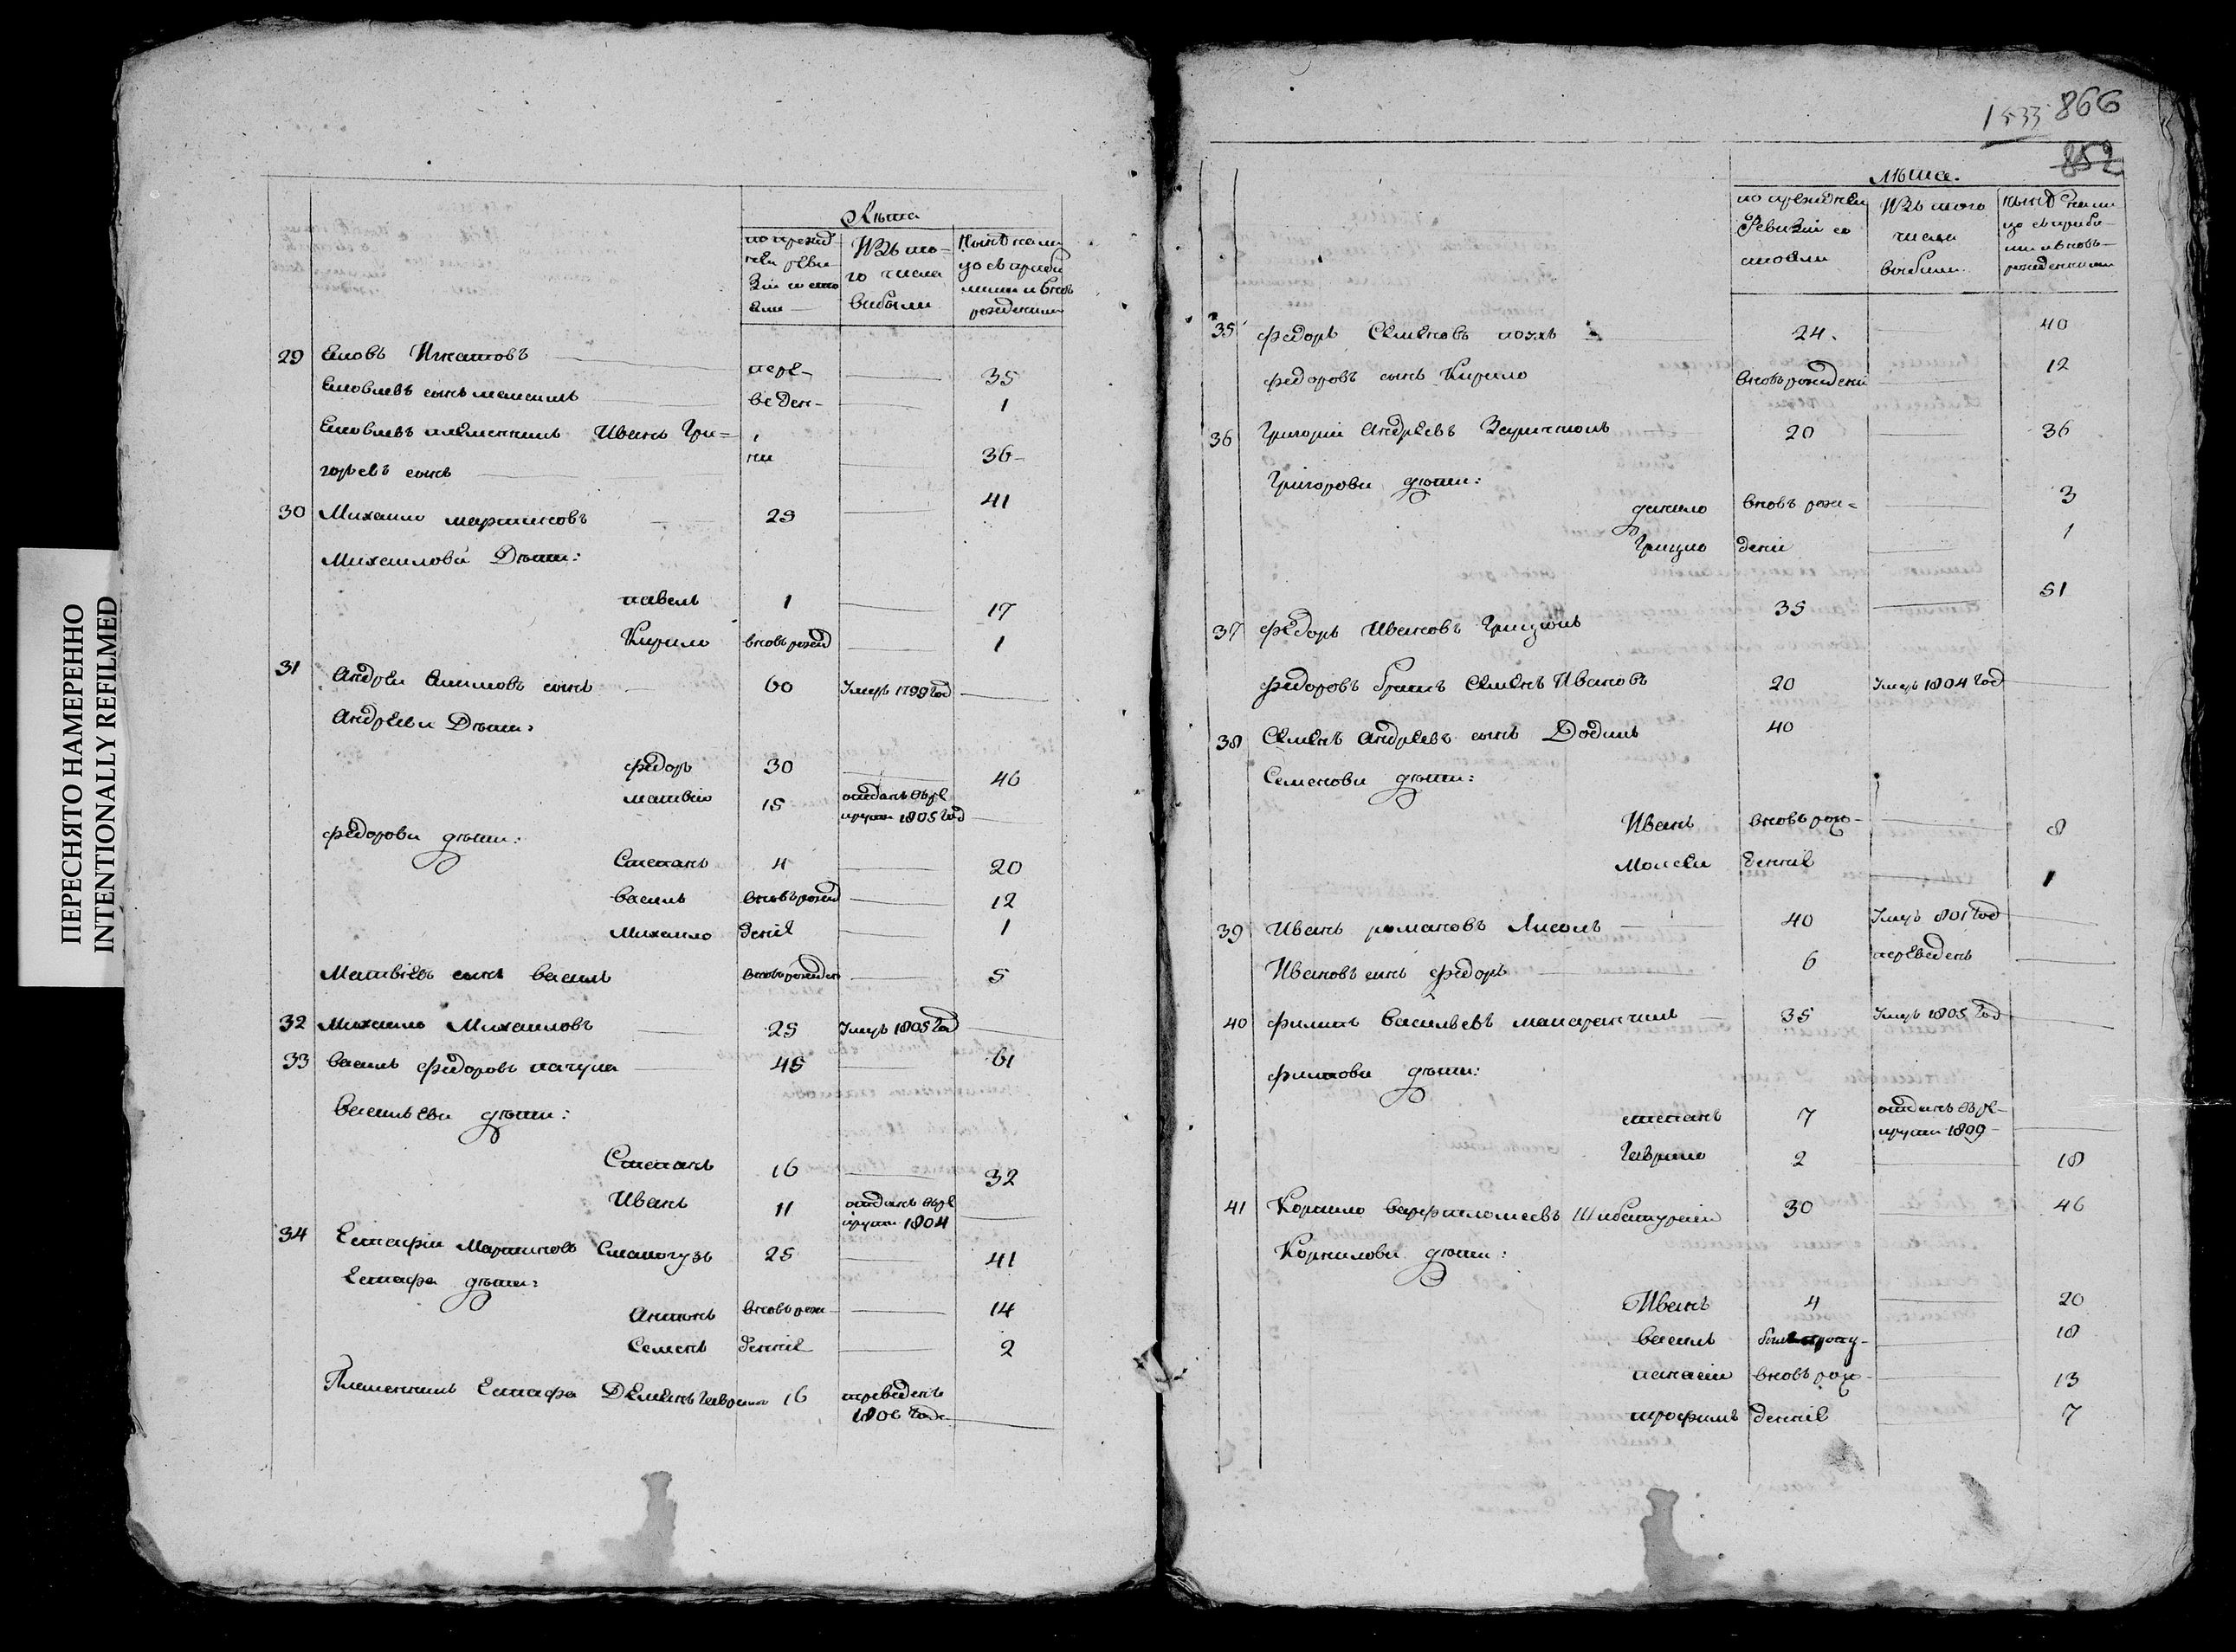 ПЕРЕСНЯТО НАМЕРЕННО
INTENTIONALLY REFILMED
Лѣта
по преж
ней реви
зіи состо
яли
Изъ то-
го числа
выбыли
нынѣ нали
цо съ прибы
лыми и вновь
рожденными
29 Яковъ Игнатовъ пере- 35
Яковлевъ сынъ Максимъ веден- 1
Яковлевъ племенникъ Иванъ Гри=
горьевъ сынъ 36
30 Михайло Мартиновъ 25 41
Михайловы Дѣти:
павелъ 1 17
Кирило вновь рожд 1
31 Андрей сынъ 60 Умеръ 1799 год
Андреевы Дѣти:
федоръ 30 46
матвѣй 15 отданъ въ ре
круты 1805 год
федоровы дѣти:
Степанъ 4 20
василь вновь рожд 12
Михайло деніе 1
Матвѣевъ сынъ василь вновь рожден 5
32 Михайло Михаиловъ 25 Умеръ 1805 год
33 василь федоровъ пачула 45 61
васильевы дѣти:
Степанъ 16 32
Иванъ 11 отданъ въ ре
круты 1804
34 Естафій Мартиновъ 25 41
Естафа дѣти:
Антонъ вновь рож- 14
Семенъ денніе 2
Племенникъ Естафа Деменъ Гаврилов 16 переведенъ
1806 года
1533 866
852
лѣта.
по прежней
Ревизіи со
стояли
Изъ того
числа
выбыли
нынѣ нали
цо съ прибы-
ми и вновь-
рожденными
35 федоръ Семеновъ 24. 40
федоровъ сынъ Кирило вновь рожденій 12
36 Григорій Андреевъ 20 36
Григоровы дѣти:
данило вновь рож= 3
Грицко деній 1
37 федоръ Ивановъ Грицюкъ 35 51
федоровъ братъ Семенъ Ивановъ 20 Умеръ 1804 год
38 Семенъ Андреевъ сынъ 40
Семеновы дѣти:
Иванъ вновь рож- 8
Моисей денніе 1
39 Иванъ романовъ 40 Умеръ 1801 год
Ивановъ сынъ федоръ 6 переведенъ
40 филипъ васильевъ 35 Умеръ 1805 год
филипови дѣти:
степанъ 7 отданъ въ ре-
круты 1809
Гаврило 2 18
41 Корнило варфаломеевъ 30 46
Корнилови дѣти:
Иванъ 4 20
василь 18
панасій вновь рож- 13
трофимъ денніе 7